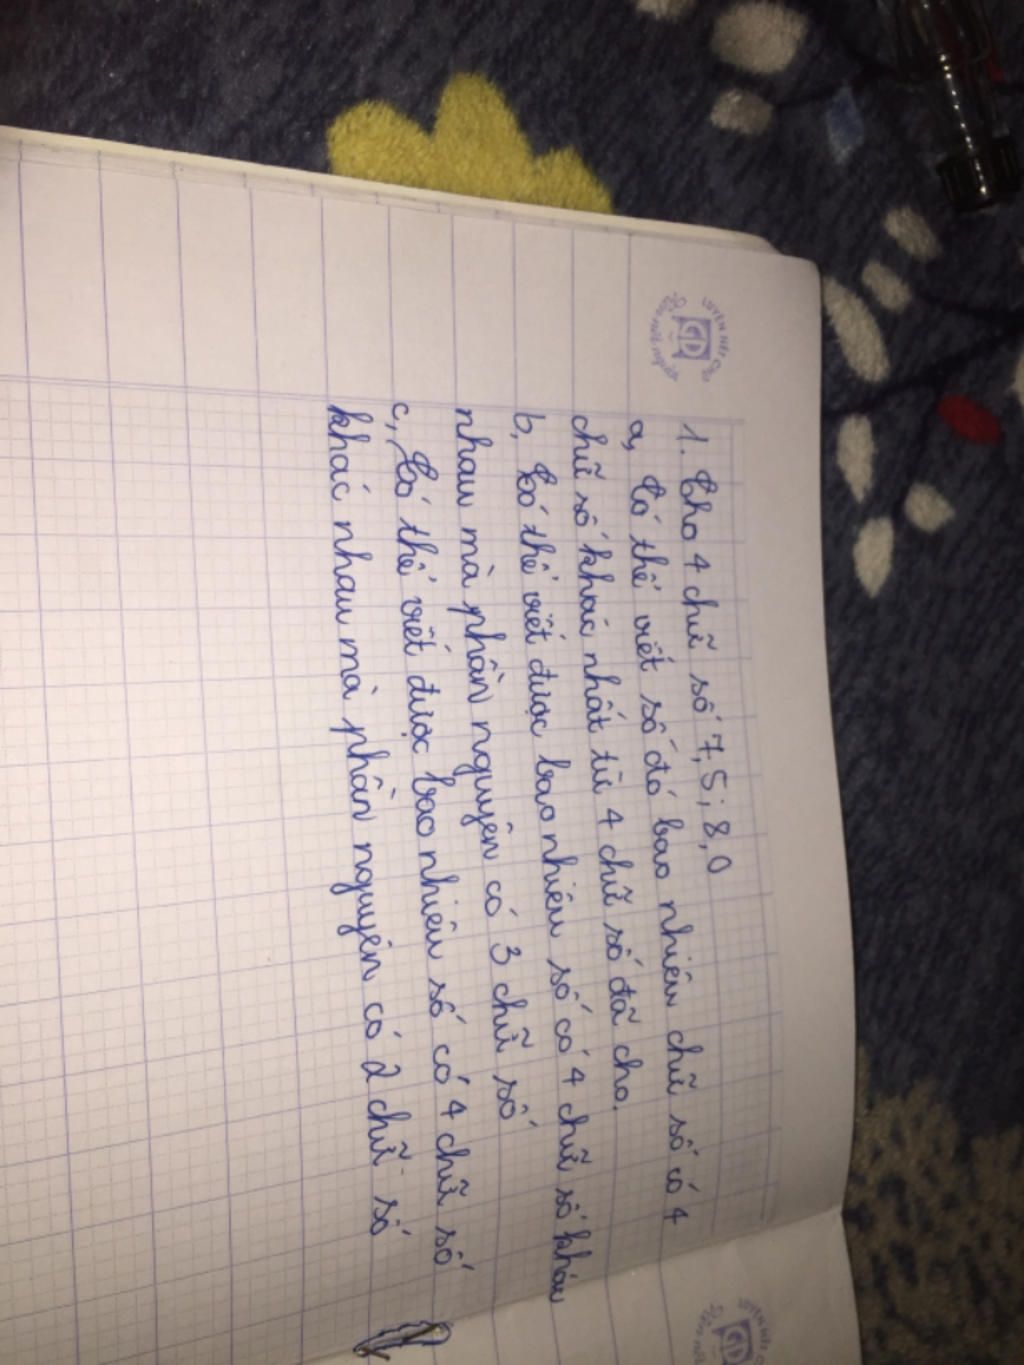 1. Cho 4 chữ số 7, 5; 8, 0
a, Có thể viết số đó bao nhiêu chữ số có 4
chữ số khác nhất từ 4 chữ số đã cho.
b, Có thể viết được bao nhiêu số có 4 chữ số khác
nhau mà phần nguyên có 3 chữ số
c, Có thể viết được bao nhiêu số có 4 chữ số
khác nhau mà phần nguyên có 2 chữ số
GD
GD